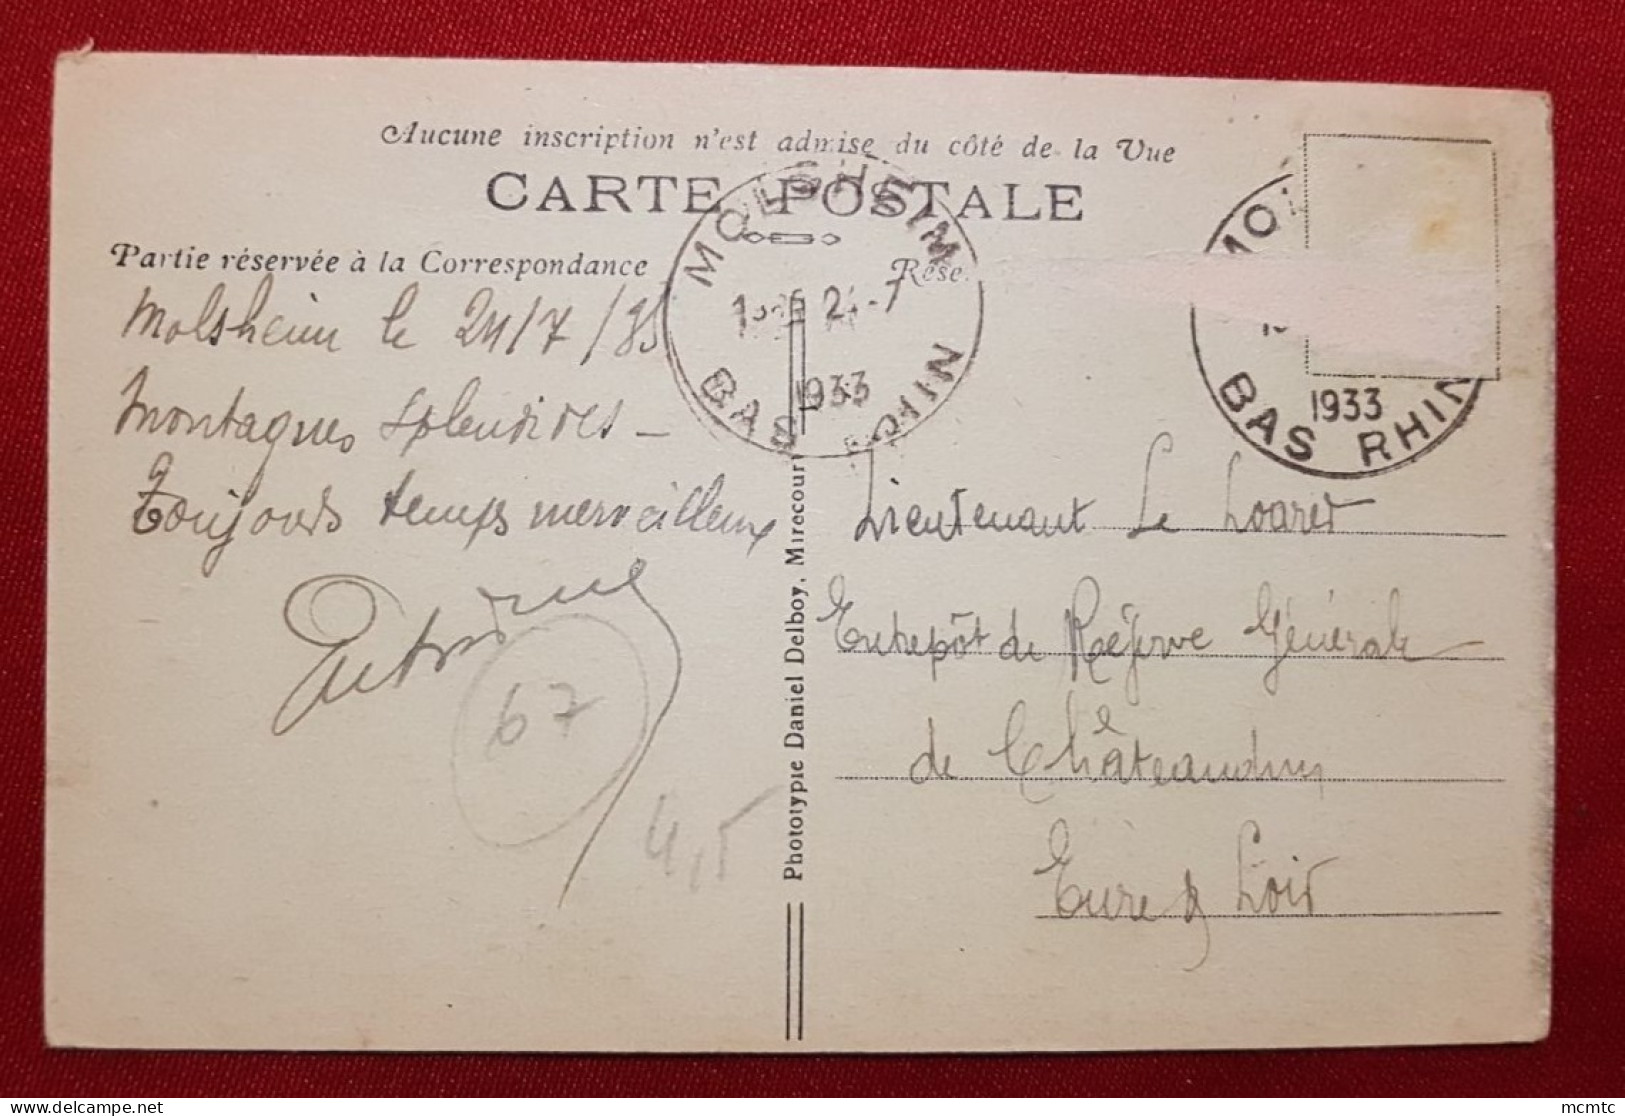 Aucune inscription n'est admise du côté de la Vue
CARTE POSTALE
Partie réservée à la Correspondance
Rése
MOLSHEIM
24-7
1933
BAS RHIN
MOL
1933
BAS RHIN
Molsheim le 24/7/33
Montagnes splendides -
Toujours temps merveilleux
67
4,5
Phototypie Daniel Delboy, Mirecourt
Lieutenant Le Loaret
Entrepôt de Réserve Générale
de Châteaudun
Eure & Loir
mcmtc